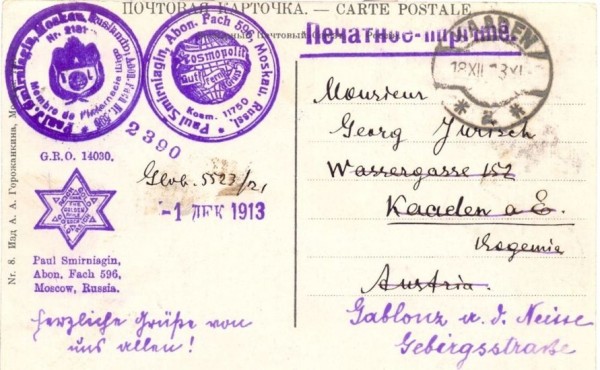 ПОЧТОВАЯ КАРТОЧКА. — CARTE POSTALE.
Paul Smirniagin, Moskau, Russland, Abon. Fach Nr. 596
Nr. 2181
Membre de
Paul Smirniagin, Abon. Fach 596, Moskau, Russl.
Kosmopolit
Gut Fern Gruss
Kosm. 11750
Печатное
KAADEN
18 XII 13
2390
G.B.O. 14030.
Glob. 5523/21
-1 ДЕК 1913
Paul Smirniagin,
Abon. Fach 596,
Moscow, Russia.
Herzliche Grüße von
uns allen!
Monsieur
Georg Jurisch
Wassergasse 152
Kaaden a E.
Austria.
Gablonz a. d. Neisse
Gebirgsstraße
Nr. 8. Изд А. А. Горожанкина, Мо